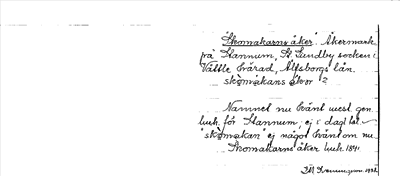 "Skomakarns åker". Åkermark
på Stannum, St. Lundby socken i
Vättle härad, Älfsborgs län.
skòmakans åkər
Namnet nu känt mest gen.
huk. för Stannum, ej i dagl. tal
"skòmakan" ej något känt om nu
Skomakarns åker huk. 1841
1921.